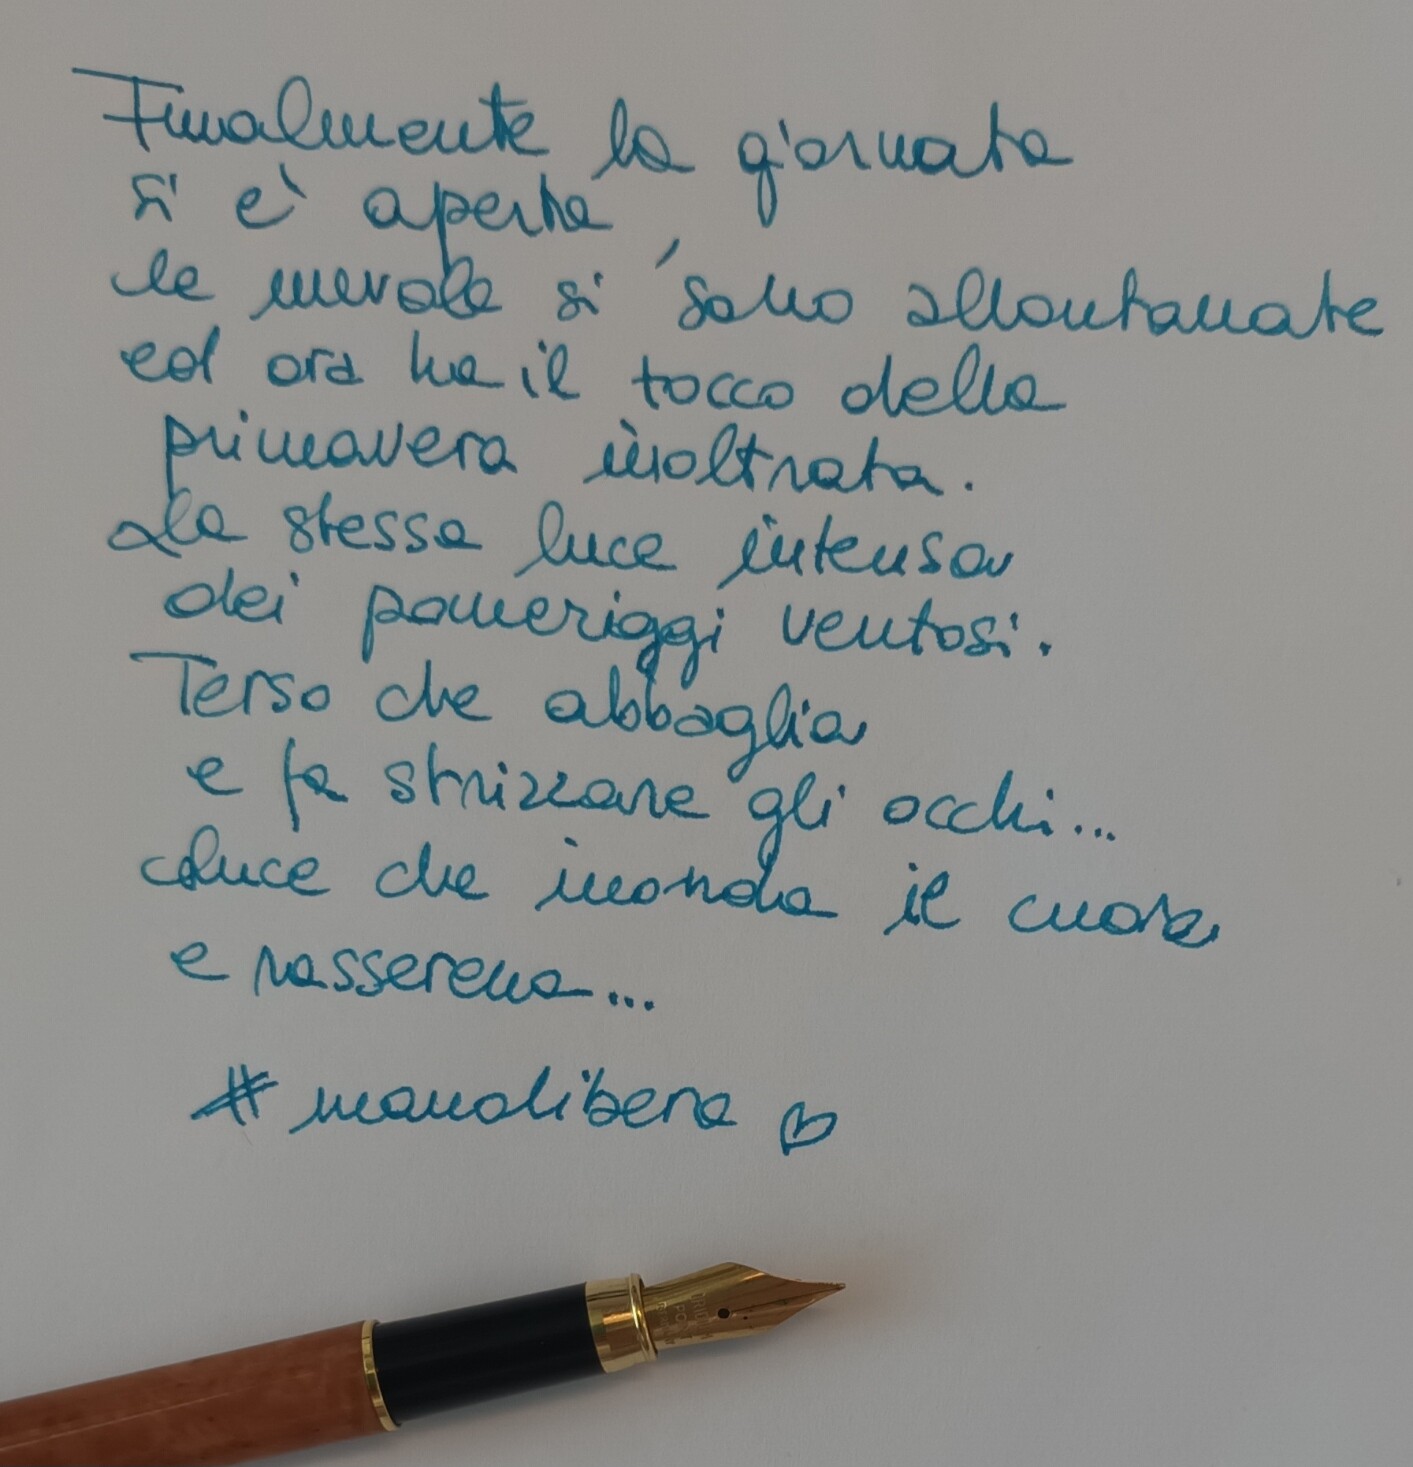 Finalmente la giornata
si è aperta,
le nuvole si sono allontanate
ed ora ha il tocco della
primavera inoltrata.
La stessa luce intensa
dei pomeriggi ventosi.
Terso che abbaglia
e fa strizzare gli occhi...
Luce che inonda il cuore
e rasserena...
#manolibera ♡